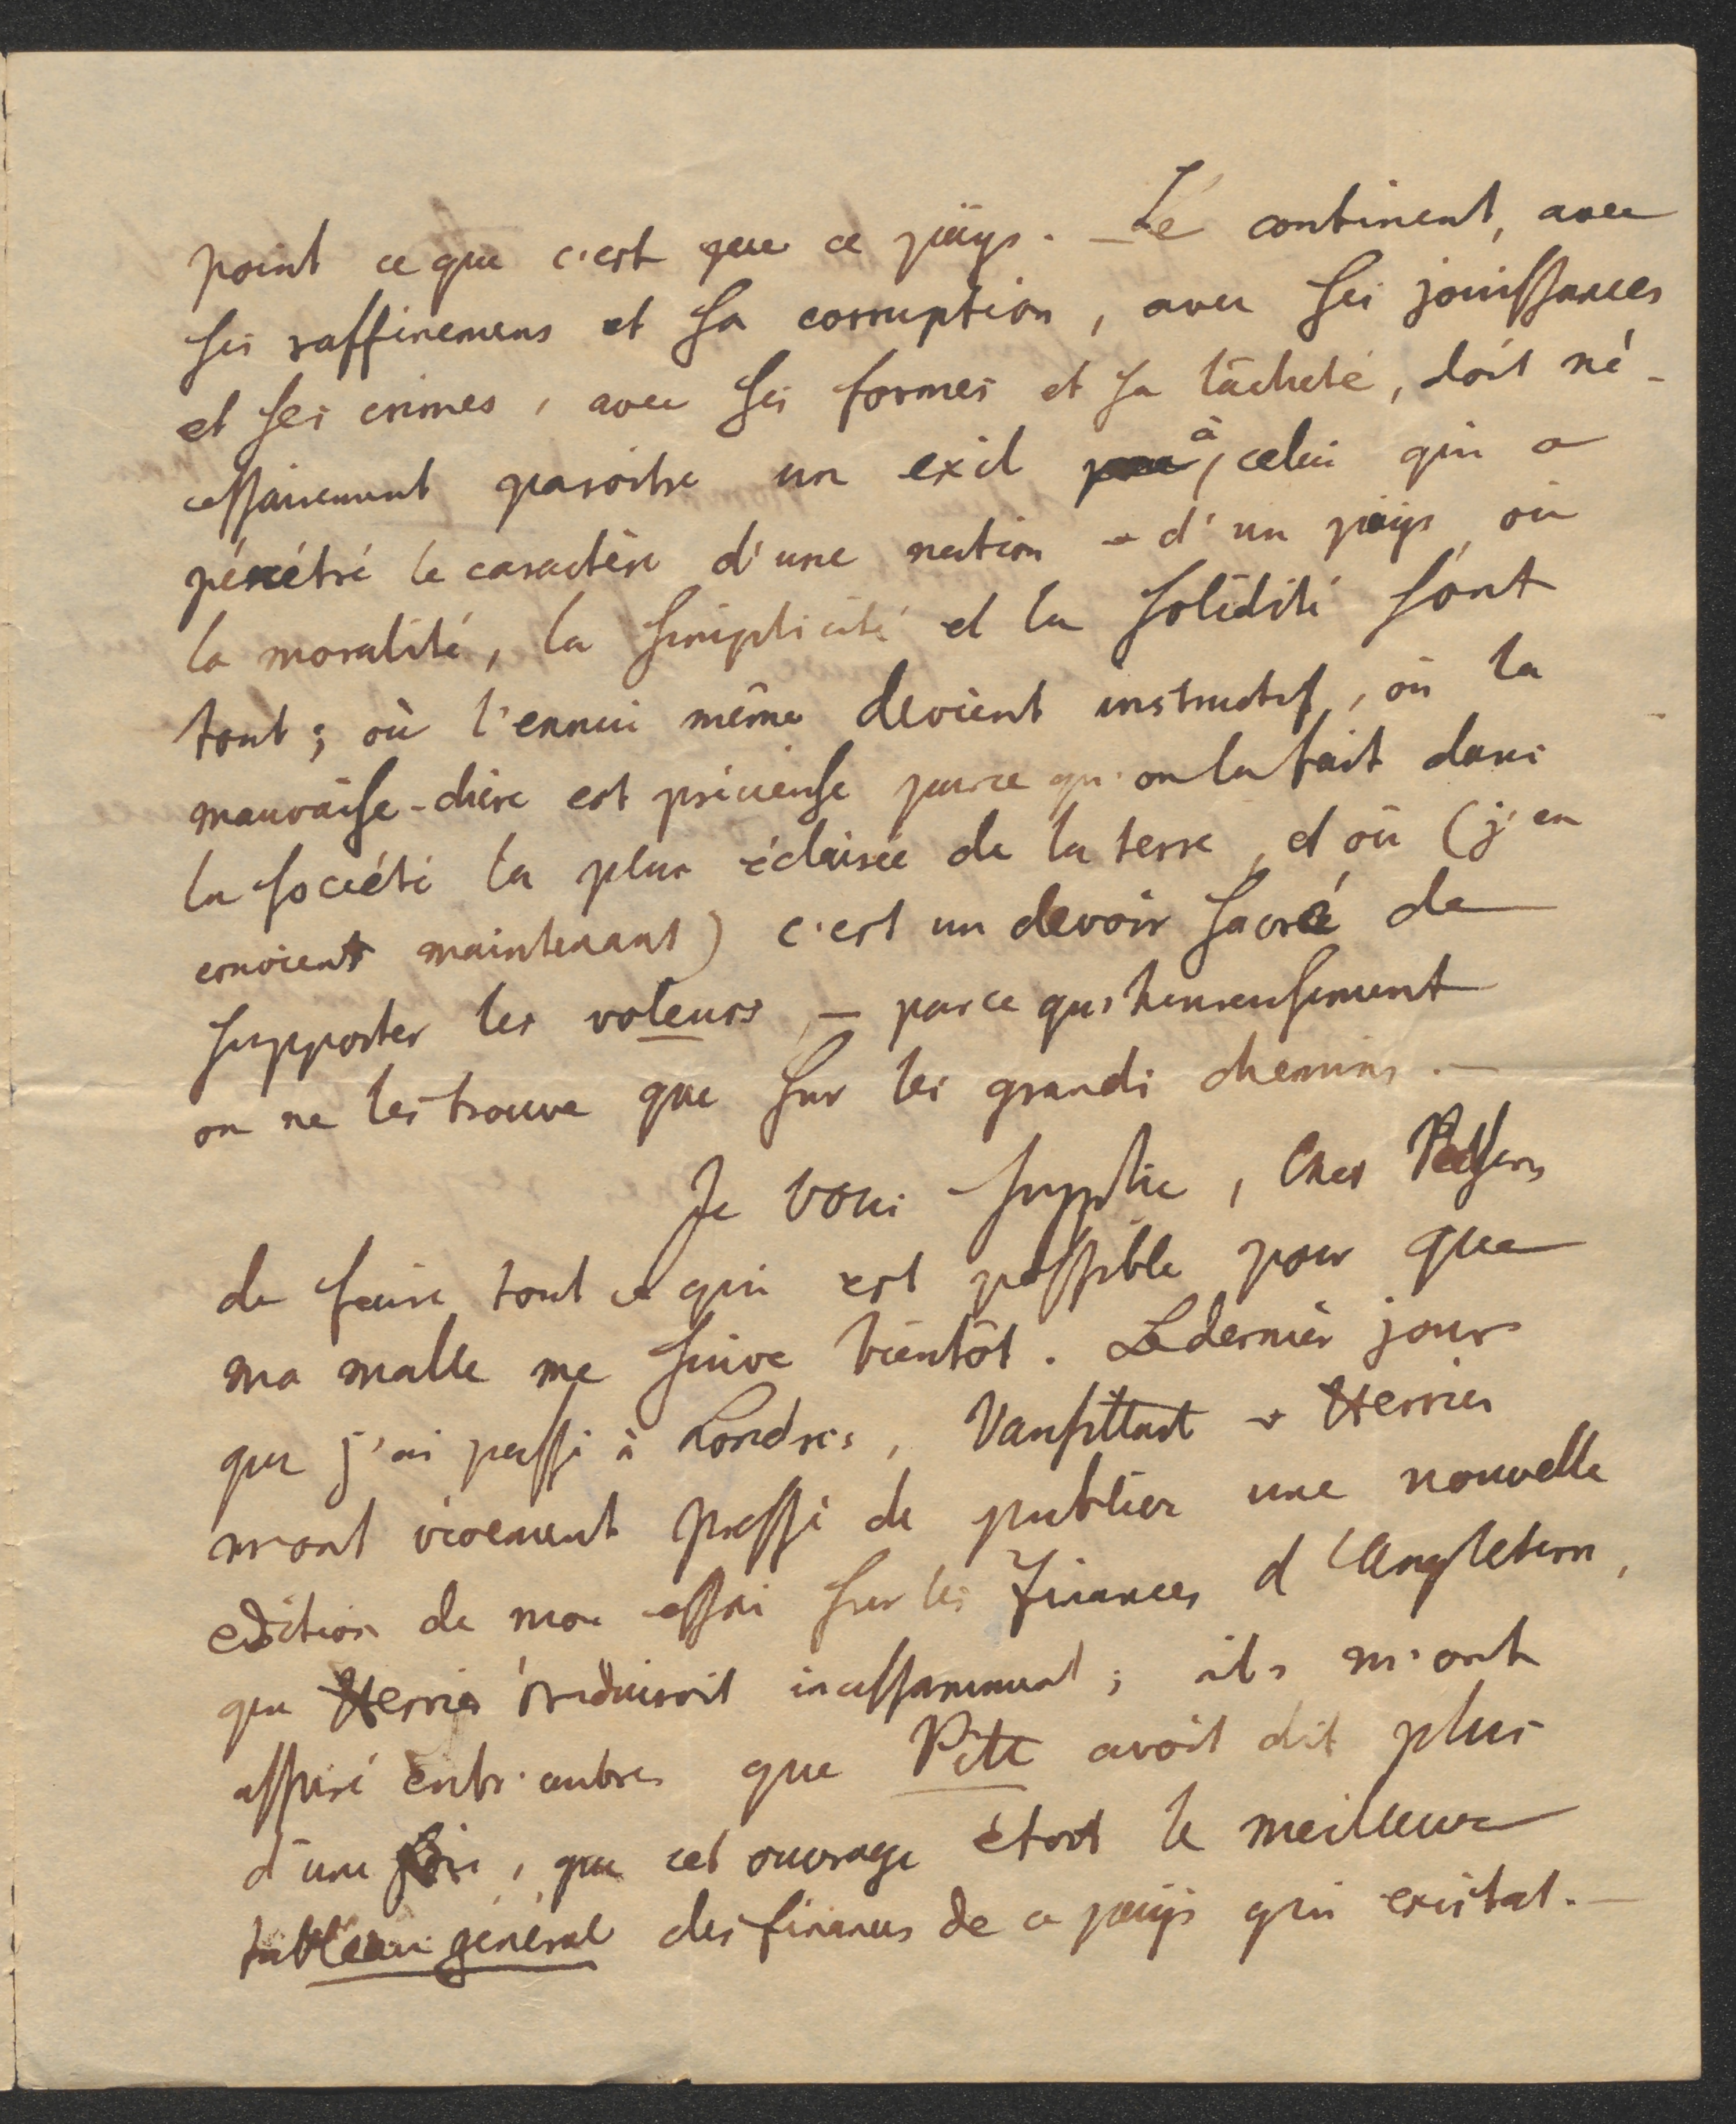 point ce que c'est que ce païs. — Le continent, avec
ses raffinemens et sa corruption, avec ses jouissances
et ses crimes, avec ses formes et sa lâcheté, doit né-
cessairement paroître un exil à celui qui a
pénétré le caractère d'une nation & d'un païs, où
la moralité, la simplicité et la solidité sont
tout; où l'ennui même devient instructif, où la
mauvaise-chère est précieuse parce qu'on la fait dans
la société la plus éclairée de la terre, et où (j'en
conviens maintenant) c'est un devoir sacré de
supporter les voleurs, — parce qu'heureusement
on ne les trouve que sur les grands chemins. —
Je vous supplie, cher
de faire tout ce qui est possible pour que
ma malle me suive bientôt. Le dernier jour
que j'ai passé à Londres, Vansittart & Herries
m'ont vivement pressé de publier une nouvelle
edition de mon essai sur les finances d l'Angleterre,
que Herries traduiroit incessamment; ils m'ont
assuré entr'autres que Pitt avoit dit plus
d'une fois, que cet ouvrage étoit le meilleur
tableau général des finances de ce païs qui existat. —